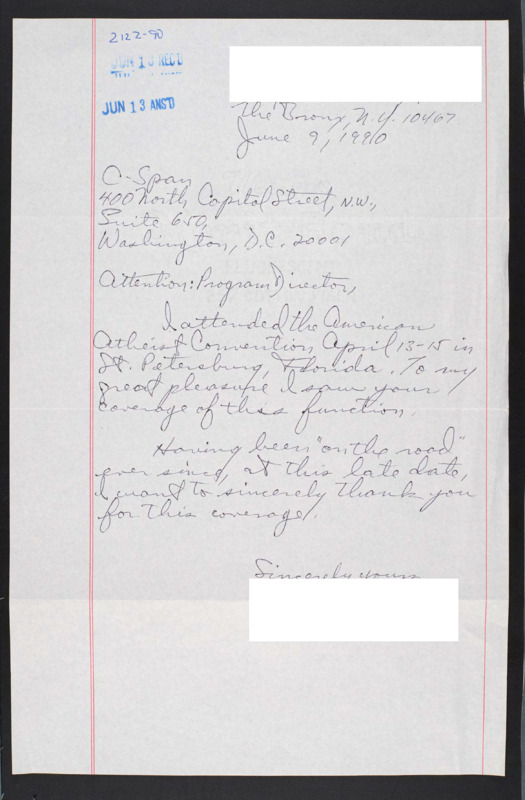 2122-90
JUN 13 REC'D
JUN 13 ANS'D
The Bronx, N.Y. 10467
June 9, 1990
C-Span
400 North Capitol Street, N.W.,
Suite 650,
Washington, D.C. 20001
Attention: Program Director,
I attended the American
Atheist Convention April 13-15 in
St. Petersburg, Florida. To my
great pleasure I saw your
coverage of this function.
Having been "on the road"
ever since, at this late date,
I want to sincerely thank you
for this coverage.
Sincerely yours